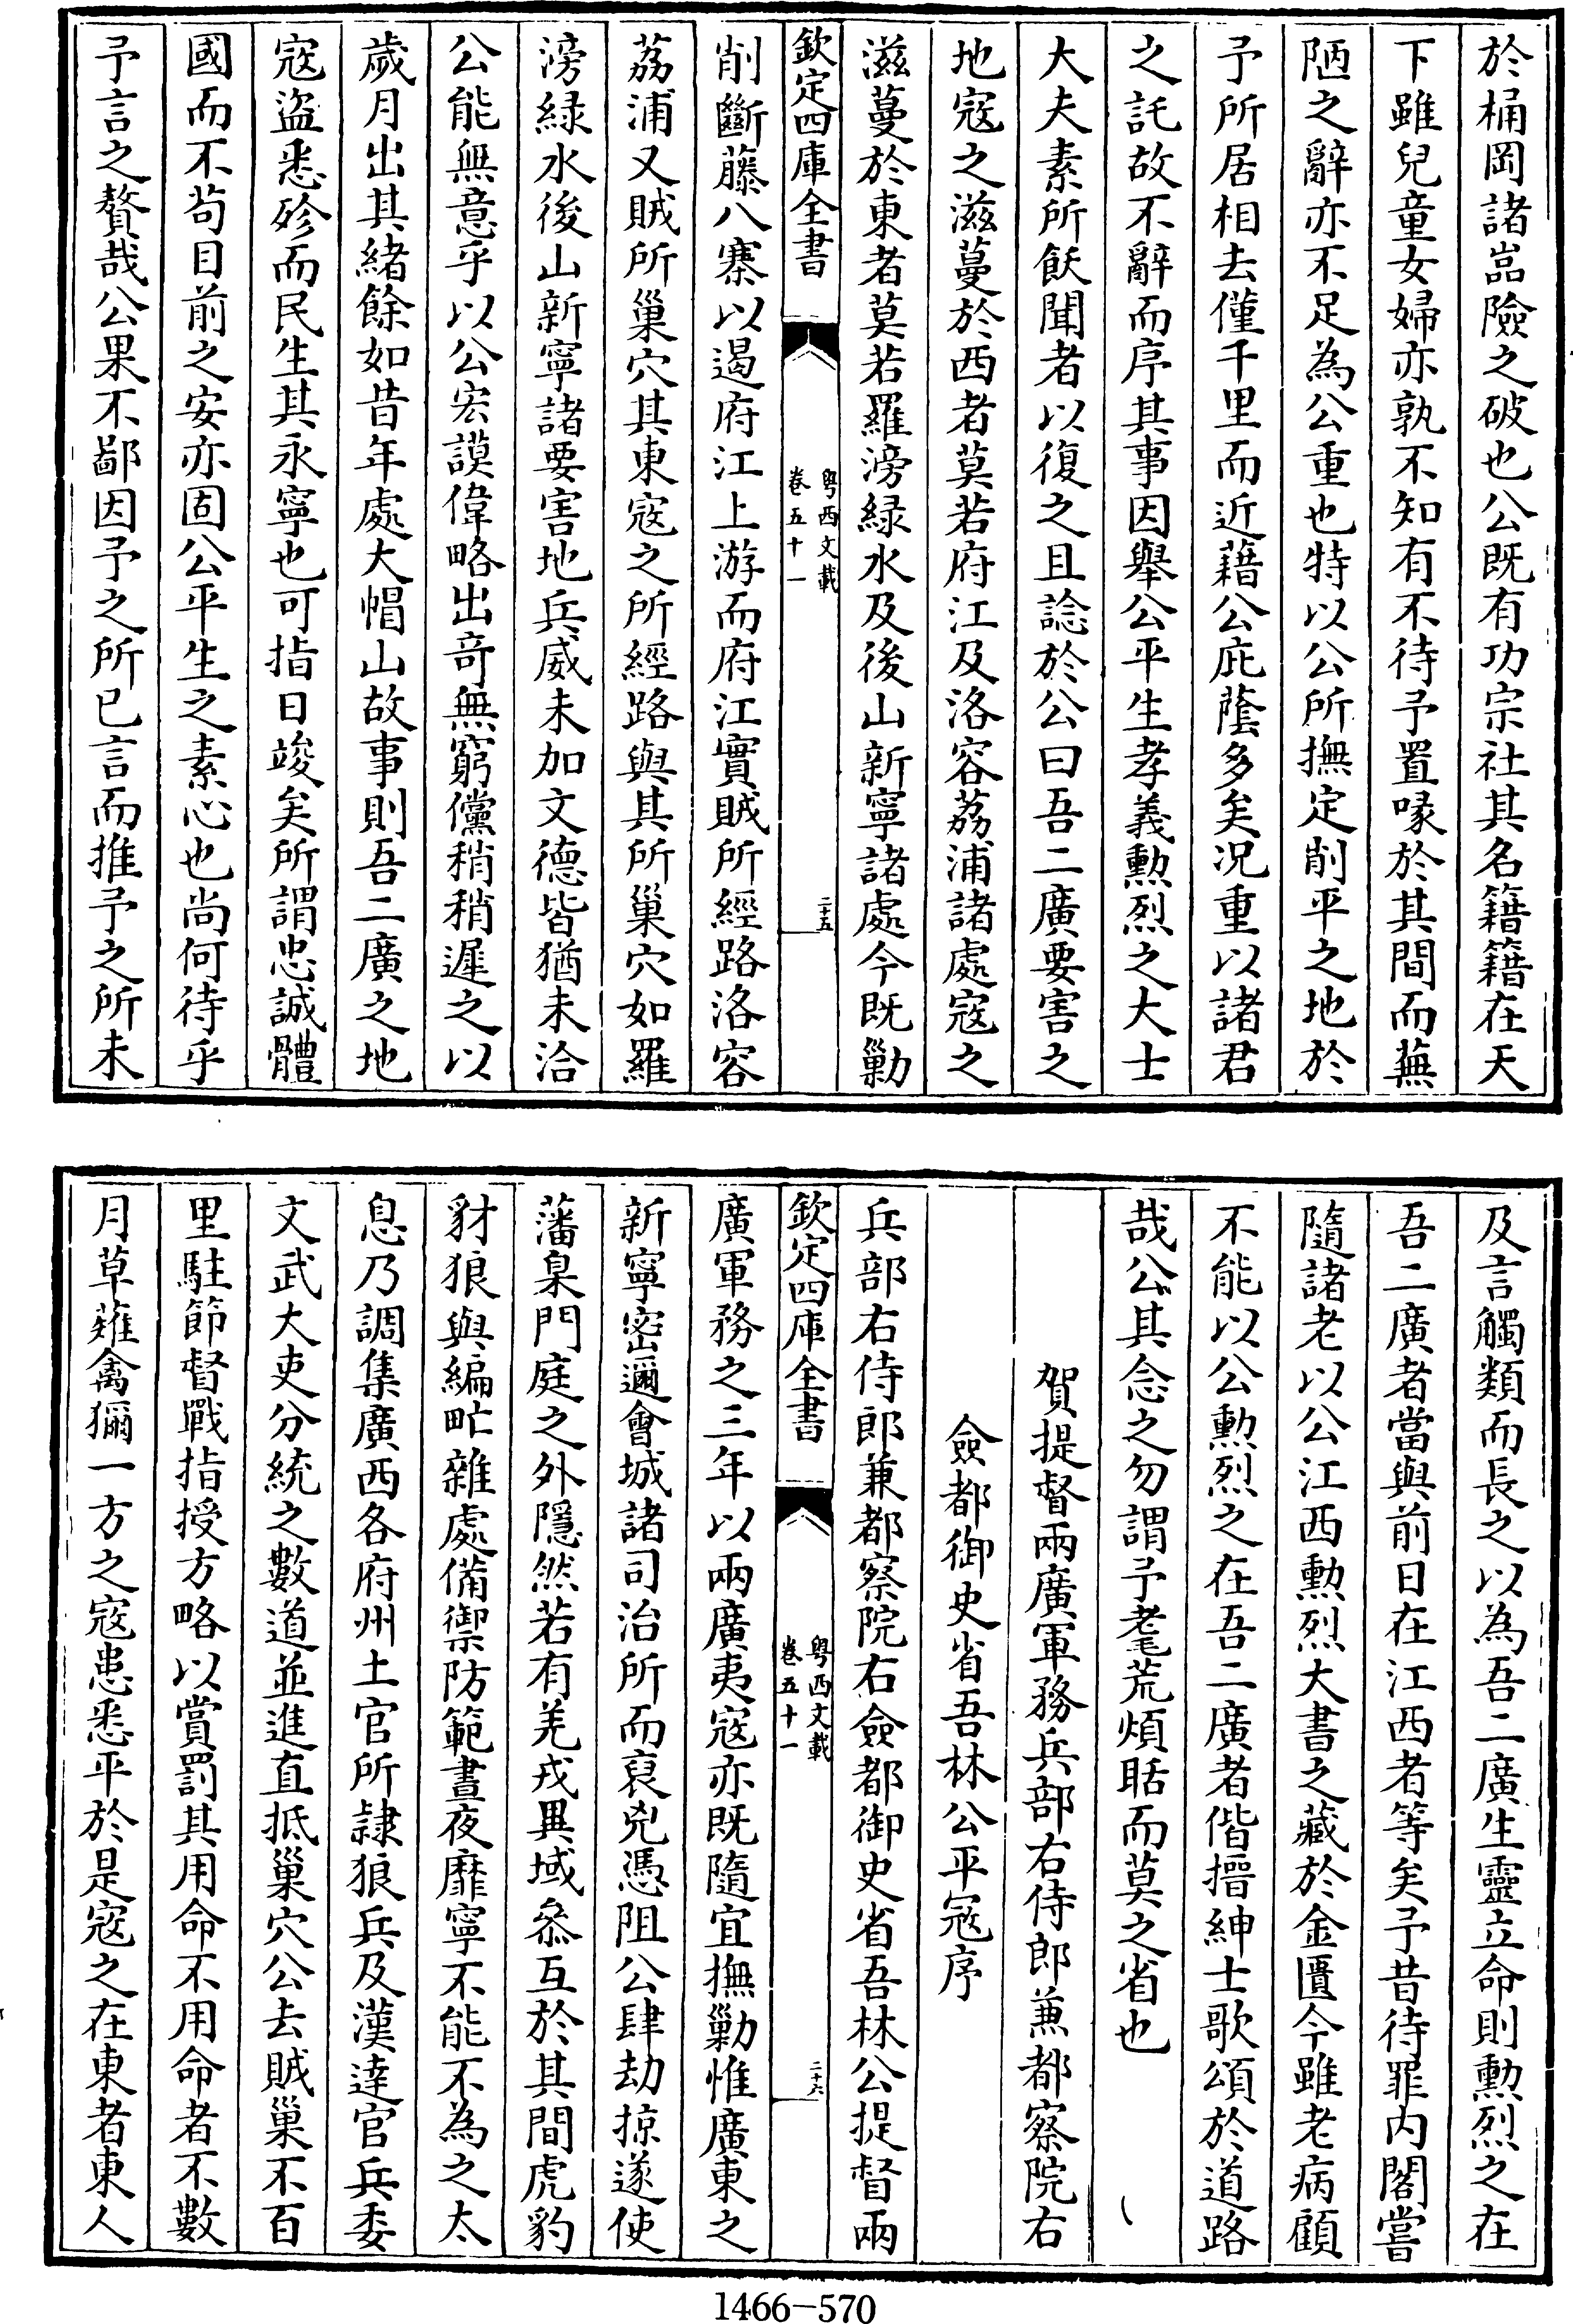 於桶岡諸嵓險之破也公既有功宗社其名籍籍在天
下雖兒童女婦亦孰不知有不待予置喙於其間而蕪
陋之辭亦不足為公重也特以公所撫定削平之地於
予所居相去僅千里而近藉公庇蔭多矣况重以諸君
之託故不辭而序其事因舉公平生孝義勲烈之大士
大夫素所飫聞者以復之且諗於公曰吾二廣要害之
地寇之滋蔓於西者莫若府江及洛容荔浦諸處寇之
滋蔓於東者莫若羅滂緑水及後山新寧諸處今既勦
欽定四庫全書
粤西文載
卷五十一
二十五
削斷藤八寨以遏府江上游而府江實賊所經路洛容
荔浦又賊所巢穴其東寇之所經路與其所巢穴如羅
滂緑水後山新寧諸要害地兵威未加文德皆猶未洽
公能無意乎以公宏謨偉略出竒無窮儻稍稍遲之以
歲月出其緒餘如昔年處大帽山故事則吾二廣之地
寇盜悉殄而民生其永寧也可指日竣矣所謂忠誠體
國而不茍目前之安亦固公平生之素心也尚何待乎
予言之贅哉公果不鄙因予之所已言而推予之所未
及言觸類而長之以為吾二廣生靈立命則勲烈之在
吾二廣者當與前日在江西者等矣予昔待罪内閣嘗
隨諸老以公江西勲烈大書之藏於金匱今雖老病顧
不能以公勲烈之在吾二廣者偕搢紳士歌頌於道路
哉公其念之勿謂予耄荒煩聒而莫之省也
賀提督兩廣軍務兵部右侍郎兼都察院右
僉都御史省吾林公平冦序
兵部右侍郎兼都察院右僉都御史省吾林公提督兩
欽定四庫全書
粤西文載
卷五十一
二十六
廣軍務之三年以兩廣夷寇亦既隨宜撫勦惟廣東之
新寧密邇會城諸司治所而裒兇憑阻公肆劫掠遂使
藩臬門庭之外隱然若有羌戎異域叅互於其間虎豹
豺狼與編甿雜處備禦防範晝夜靡寧不能不為之太
息乃調集廣西各府州土官所隷狼兵及漢達官兵委
文武大吏分統之數道並進直抵巢穴公去賊巢不百
里駐節督戰指授方略以賞罰其用命不用命者不數
月草薙禽獮一方之寇患悉平於是寇之在東者東人
1466-570